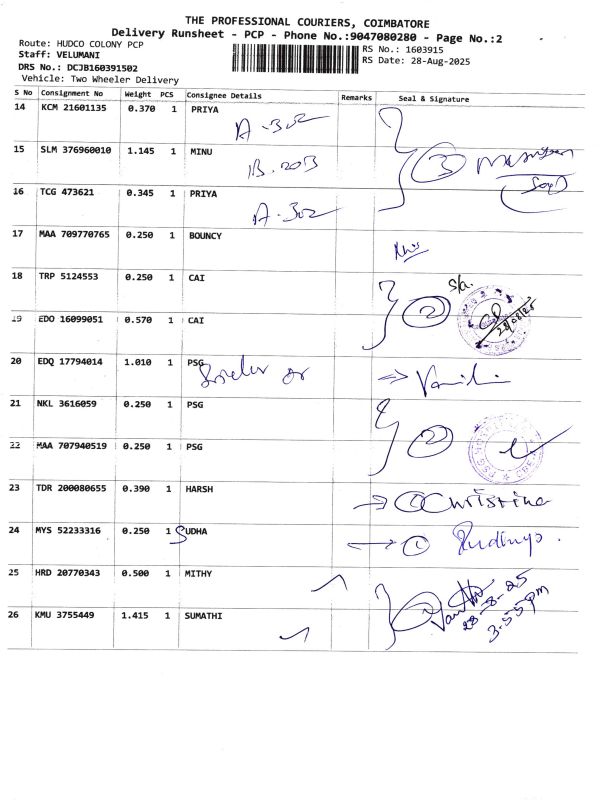 THE PROFESSIONAL COURIERS, COIMBATORE
Delivery Runsheet - PCP - Phone No.:9047080280 - Page No.:2
Route: HUDCO COLONY PCP
RS No.: 1603915
Staff: VELUMANI
RS Date: 28-Aug-2025
DRS No.: DCJB160391502
Vehicle: Two Wheeler Delivery
S No Consignment No Weight PCS Consignee Details Remarks Seal & Signature
14 KCM 21601135 0.370 1 PRIYA
A-302
15 SLM 376960010 1.145 1 MINU
3
B.203
16 TCG 473621 0.345 1 PRIYA
A-302
17 MAA 709770765 0.250 1 BOUNCY
18 TRP 5124553 0.250 1 CAI
2
28/08/25
19 EDO 16099051 0.570 1 CAI
20 EDQ 17794014 1.010 1 PSG
21 NKL 3616059 0.250 1 PSG
2
22 MAA 707940519 0.250 1 PSG
23 TDR 200080655 0.390 1 HARSH
1 Christina
24 MYS 52233316 0.250 1 SUDHA
1
25 HRD 20770343 0.500 1 MITHY
28-8-25
3.55pm
26 KMU 3755449 1.415 1 SUMATHI